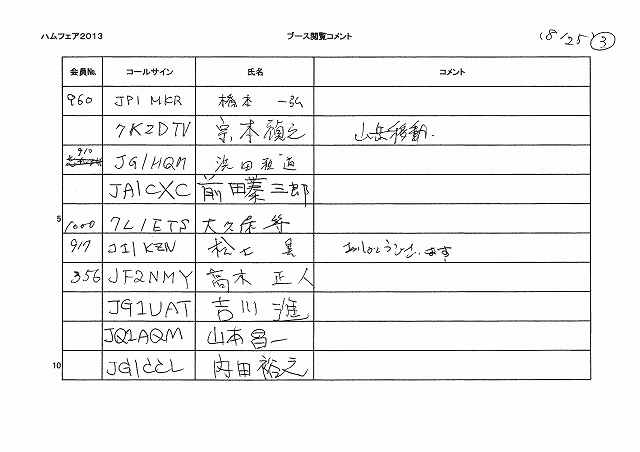 ハムフェア2013 ブース閲覧コメント (8/25) ③
会員№. コールサイン 氏名 コメント
960 JP1MKR 橋本 一弘
7K2DTV 宗本禎之 山岳移動.
910 JG1HQM 浜田 道
JA1CXC 前田 三郎
5 1000 7L1ETS 大久保 等
917 J11KZN 松 ありがとうございます
356 JF2NMY 高木 正人
JG1UAT 吉川
JQ1AQM 山本昌一
10 JG1CCL 内田裕之